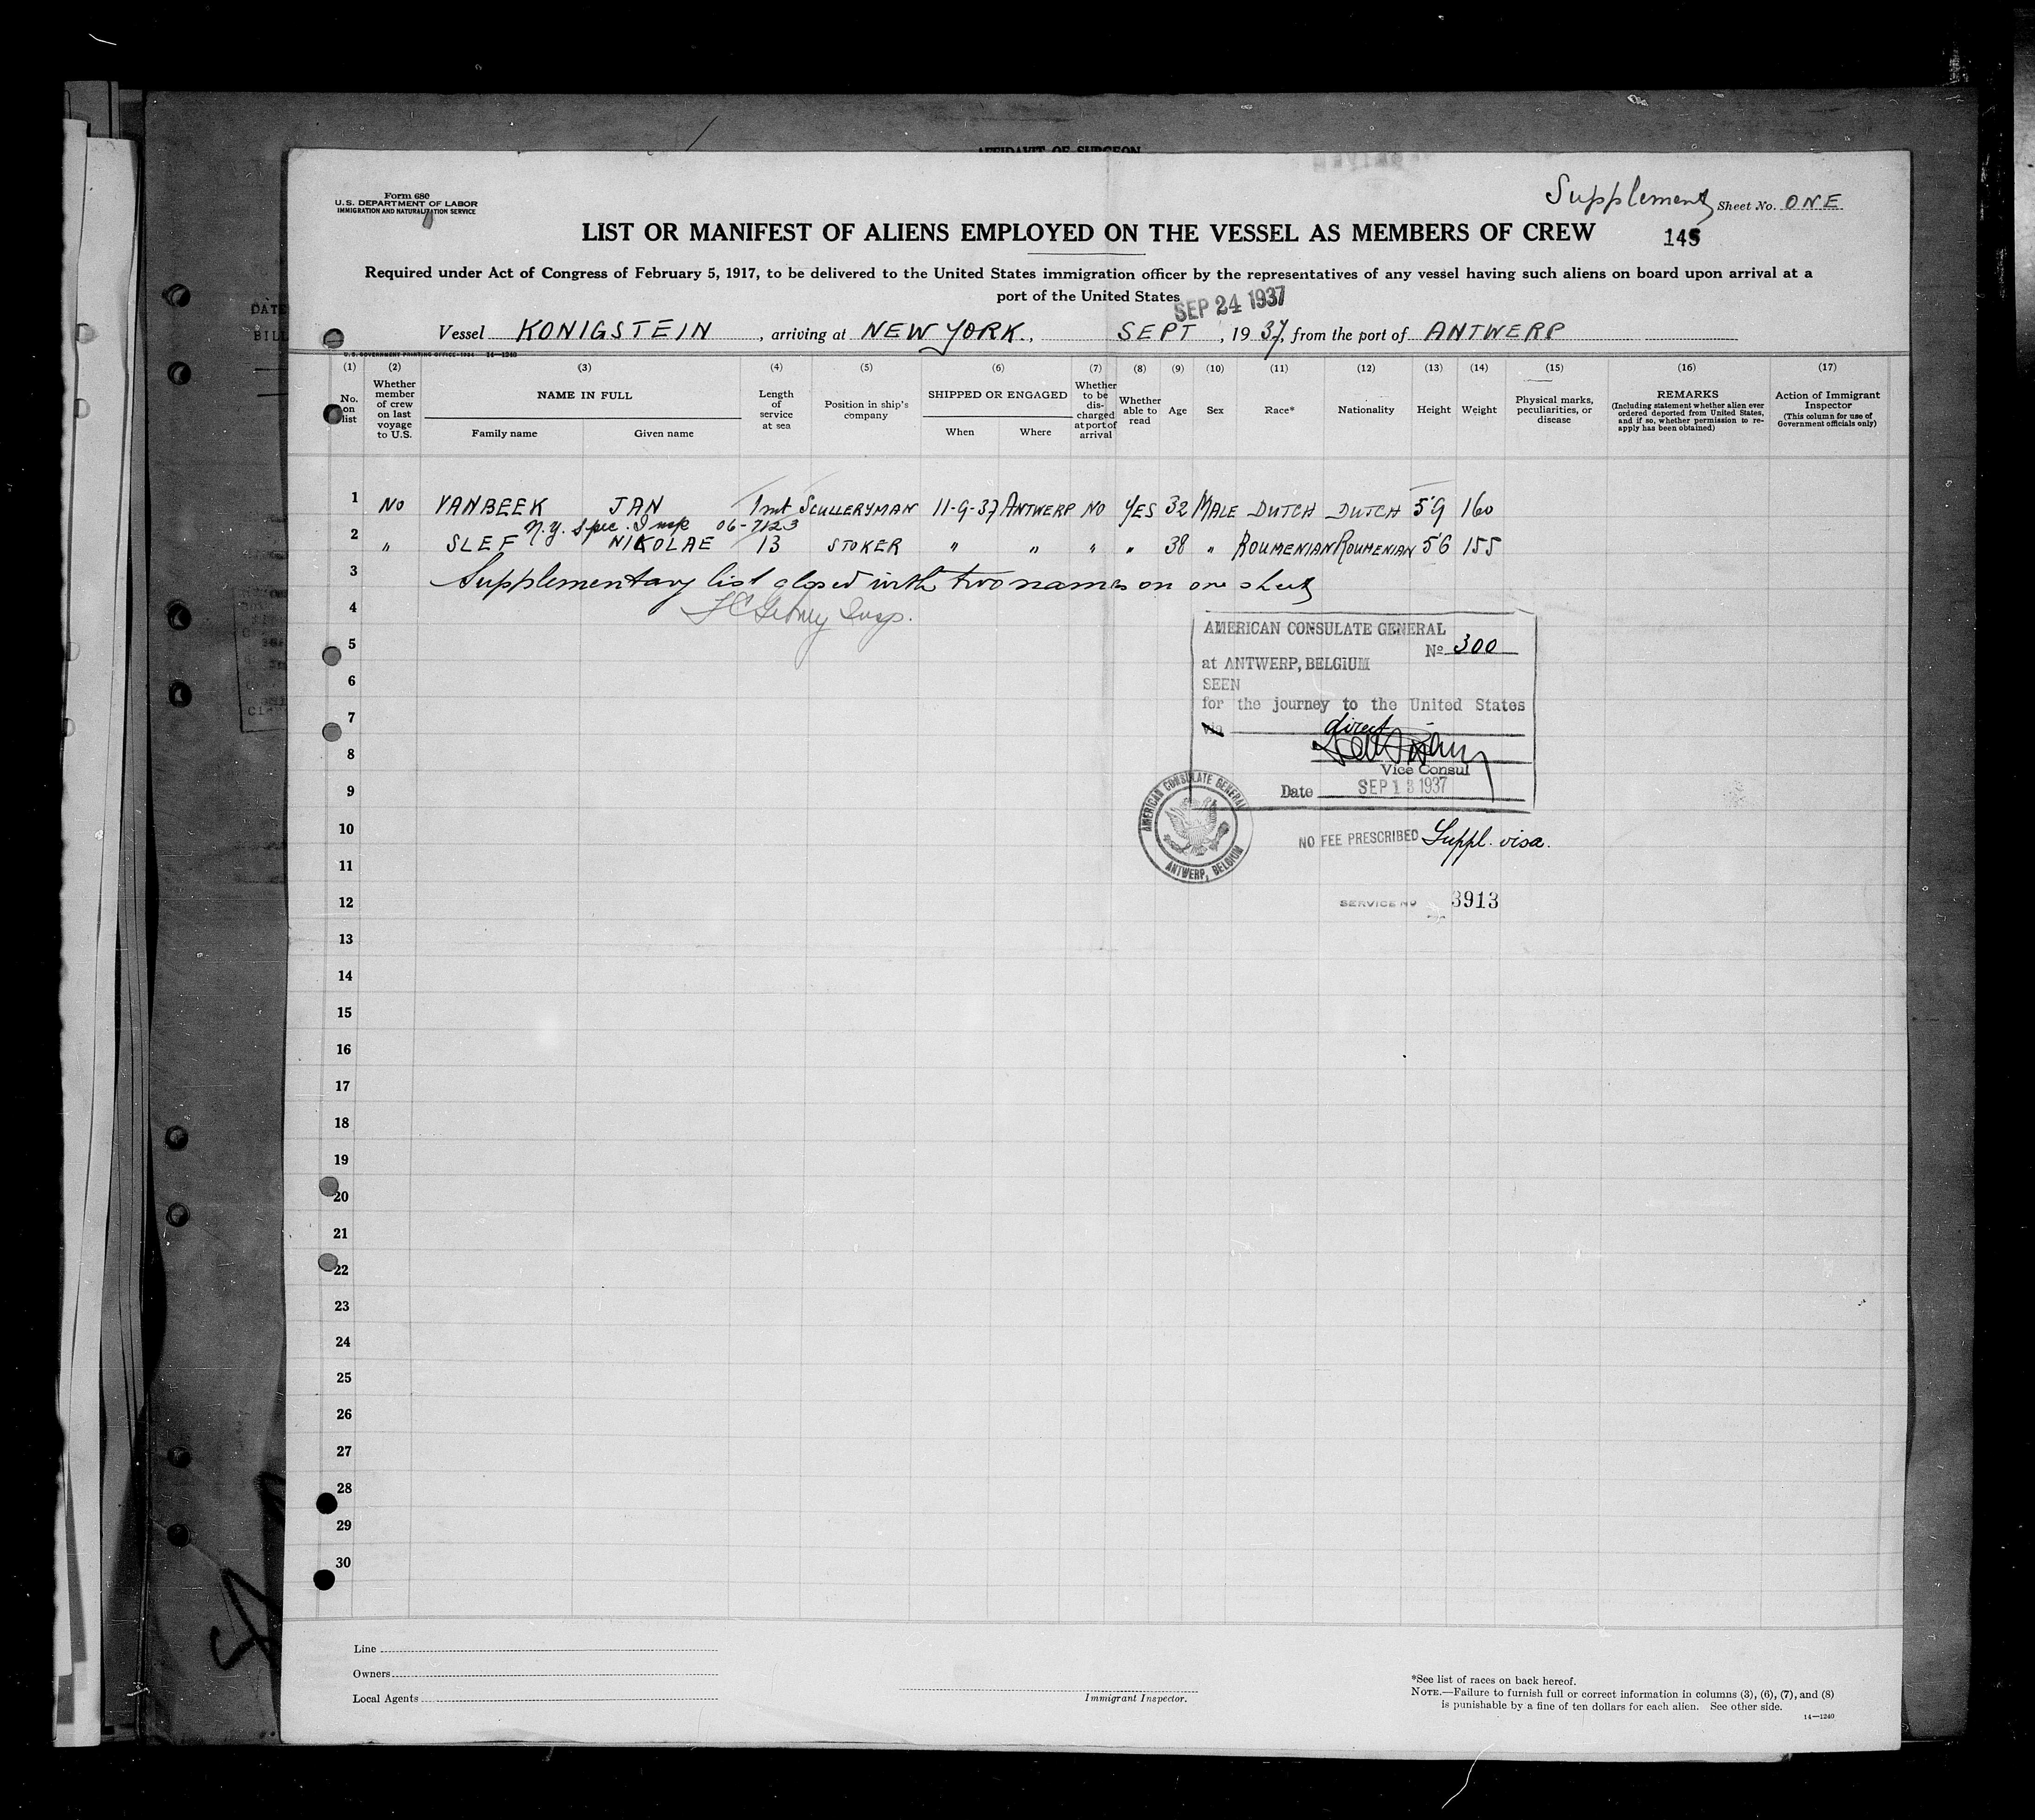 AFFIDAVIT OF SURGEON
Form 680
U.S. DEPARTMENT OF LABOR
IMMIGRATION AND NATURALIZATION SERVICE
Supplement Sheet No. ONE
LIST OR MANIFEST OF ALIENS EMPLOYED ON THE VESSEL AS MEMBERS OF CREW
145
Required under Act of Congress of February 5, 1917, to be delivered to the United States immigration officer by the representatives of any vessel having such aliens on board upon arrival at a
port of the United States
SEP 24 1937
Vessel KONIGSTEIN, arriving at NEW YORK., SEPT, 1937, from the port of ANTWERP
U.S. GOVERNMENT PRINTING OFFICE: 1934 14—1240
(1) (2) (3) (4) (5) (6) (7) (8) (9) (10) (11) (12) (13) (14) (15) (16) (17)
No. on list
Whether member of crew on last voyage to U.S.
NAME IN FULL
Family name Given name
Length of service at sea
Position in ship's company
SHIPPED OR ENGAGED
When Where
Whether to be discharged at port of arrival
Whether able to read
Age
Sex
Race*
Nationality
Height
Weight
Physical marks, peculiarities, or disease
REMARKS
(Including statement whether alien ever ordered deported from United States, and if so, whether permission to reapply has been obtained)
Action of Immigrant Inspector
(This column for use of Government officials only)
1 NO VANBEEK JAN 1 mt SCULLERYMAN 11-9-37 ANTWERP NO YES 32 MALE DUTCH DUTCH 5'9 160
N.Y. Spec. Insp 06-7123
2 " SLEF NIKOLAE 13 STOKER " " " " 38 " ROUMENIAN ROUMENIAN 5'6 155
3 Supplementary list closed with two names on one sheet
4
Insp.
5
6
7
8
9
10
11
12
13
14
15
16
17
18
19
20
21
22
23
24
25
26
27
28
29
30
AMERICAN CONSULATE GENERAL
No 300
at ANTWERP, BELGIUM
SEEN
for the journey to the United States
via direct
Vice Consul
Date SEP 13 1937
AMERICAN CONSULATE GENERAL
ANTWERP, BELGIUM
NO FEE PRESCRIBED Suppl. visa.
SERVICE NO 3913
Line
Owners
Local Agents
Immigrant Inspector.
*See list of races on back hereof.
NOTE.—Failure to furnish full or correct information in columns (3), (6), (7), and (8)
is punishable by a fine of ten dollars for each alien. See other side.
14—1240